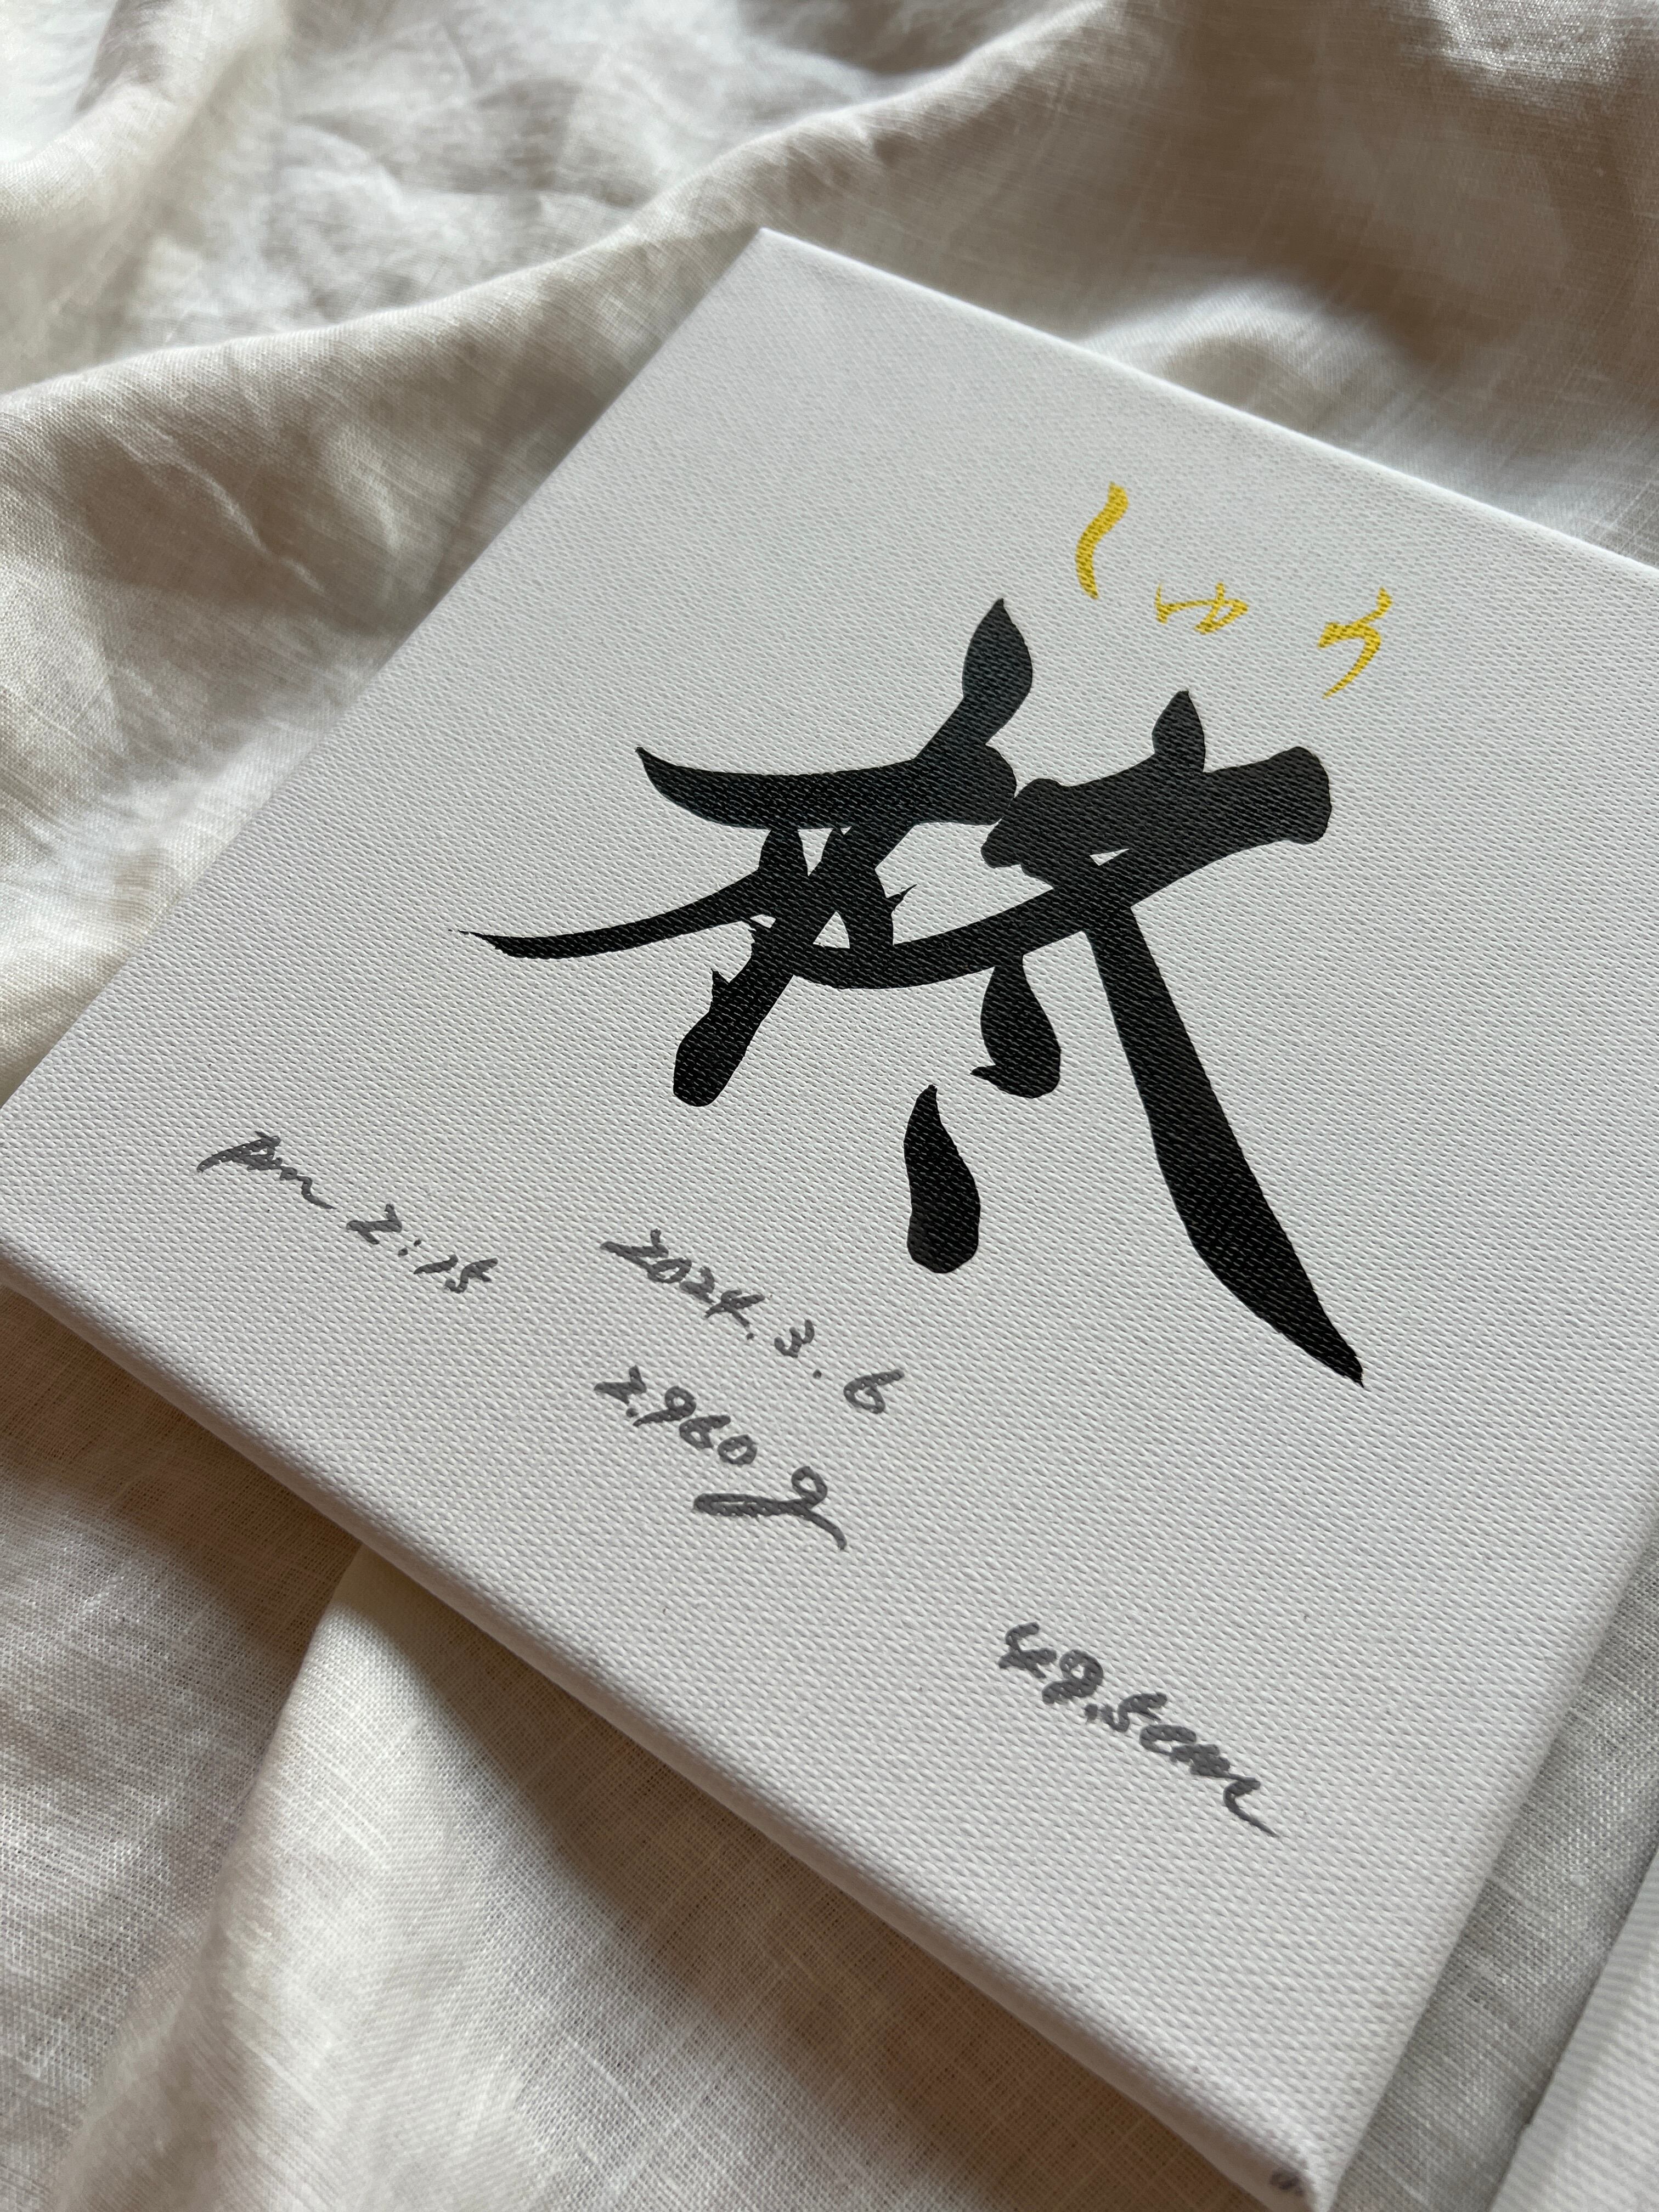 しゅう
柊
2024.3.6
pm 2:15
2.960g
49.5cm